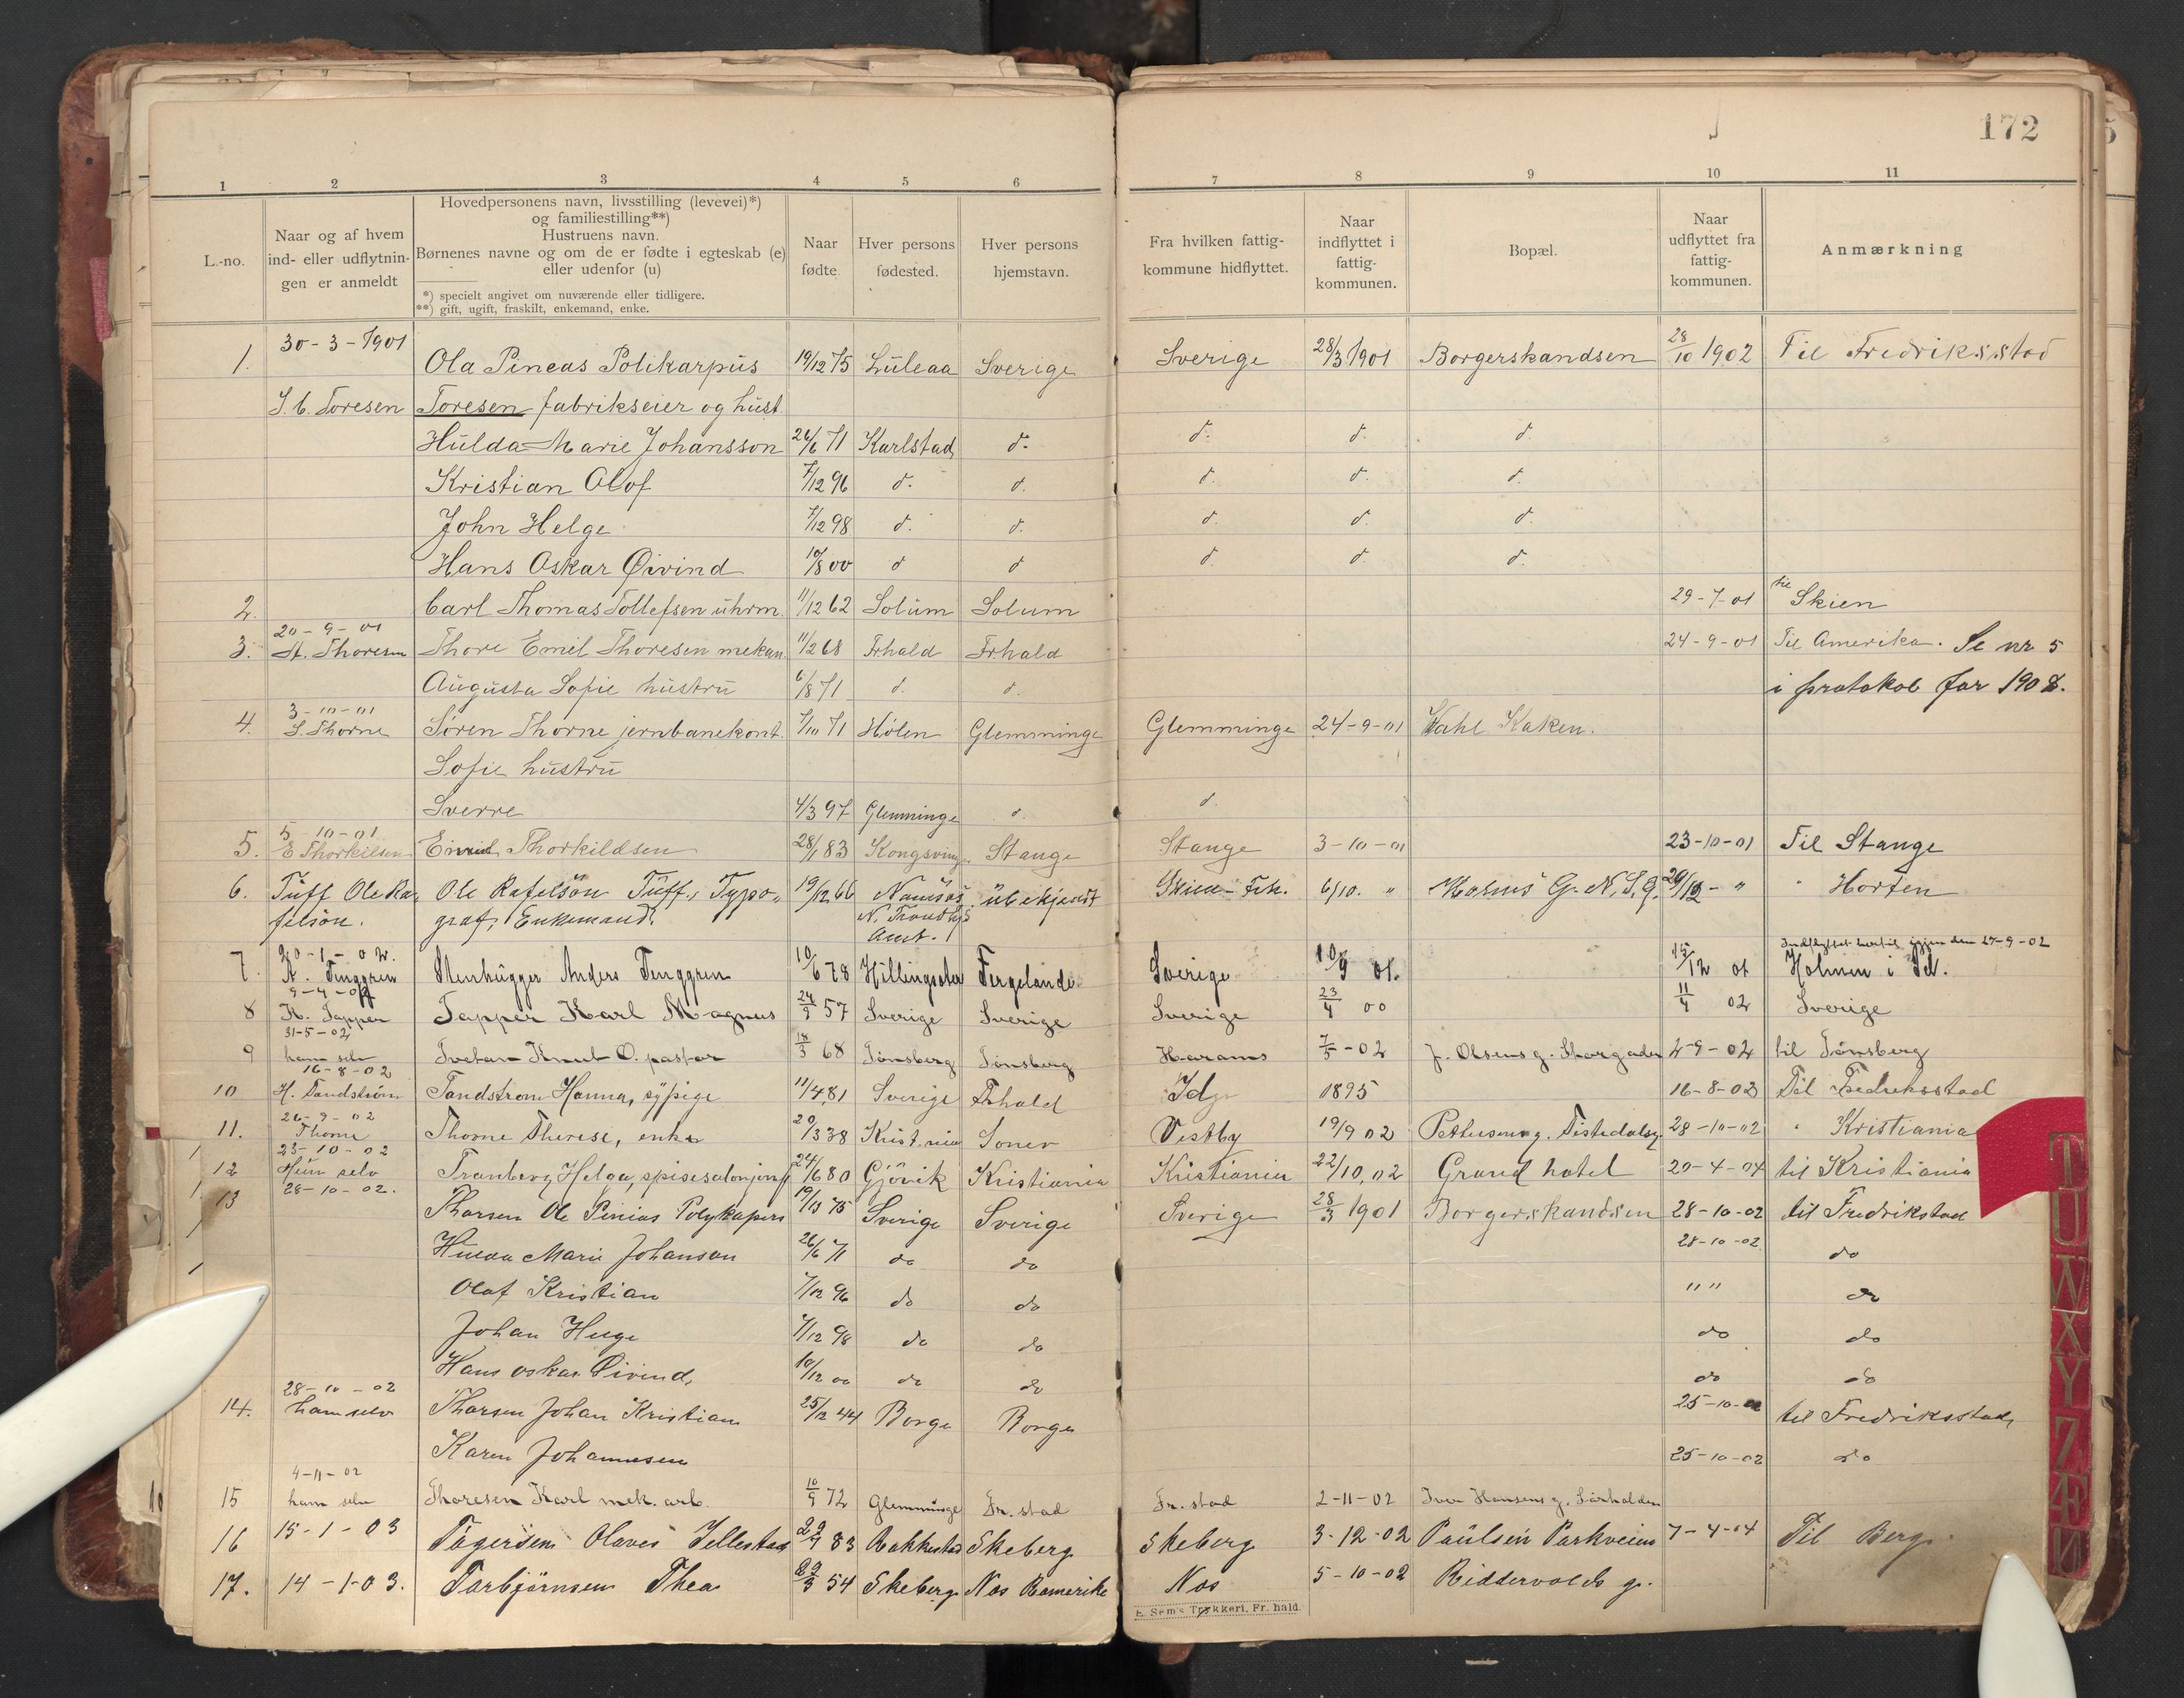 172
1 2 3 4 5 6 7 8 9 10 11
L.-no.
Naar og af hvem
ind- eller udflytnin-
gen er anmeldt
Hovedpersonens navn, livsstilling (levevei)*)
og familiestilling**)
Hustruens navn.
Børnenes navne og om de er fødte i egteskab (e)
eller udenfor (u)
*) specielt angivet om nuværende eller tidligere.
**) gift, ugift, fraskilt, enkemand, enke.
Naar
fødte
Hver persons
fødested.
Hver persons
hjemstavn.
Fra hvilken fattig-
kommune hidflyttet.
Naar
indflyttet i
fattig-
kommunen.
Bopæl.
Naar
udflyttet fra
fattig-
kommunen.
Anmærkning
30-3-1901
1. Ola Pineas Polikarpus 19/12 75 Luleaa Sverige Sverige 28/3 1901 Borgerskandsen 28/10 1902 Til Fredriksstad
S. C. Toresen Toresen fabrikseier og hust.
Hulda Marie Johansson 26/6 71 Karlstad d. d. d. d.
Kristian Olof 7/12 96 d. d. d. d. d.
John Helge 7/12 98 d. d. d. d. d.
Hans Oskar Øivind 10/8 00 d d d. d. d.
2. Carl Thomas Tollefsen uhrm. 11/12 62 Solum Solum 29-7-01 til Skien
20-9-01
3. A. Thoresen Thore Emil Thoresen mekan. 11/2 68 Frhald Frhald 24-9-01 Til Amerika. Se nr 5
Augusta Sofie hustru 6/8 71 d. d. i protokol for 1908.
3-10-01
4. S. Thorne Søren Thorne jernbanekont. 7/10 71 Hølen Glemminge Glemminge 24-9-01 Wahl Kaken.
Sofie hustru
Sverre 4/3 97 Glemminge d. d.
5-10-01
5. E Thorkilsen Thorkildsen 28/1 83 Kongsvinger Stange Stange 3-10-01 23-10-01 Til Stange
6. Tuff Ole Ra- Ole Rafelsön Tuff, Typo- 19/12 66 Namsos ubekjendt Frh. 6/10. " G. N. S. G. " " Horten
felsön. graf, Enkemand. N. Trondhjs
Amt.
20-1-02. Indflyttet hertil igjen den 27-9-02
7. A. Tenggren Stenhugger Anders Tenggren 10/6 78 Sverige 10/9 01. 15/12 01 Holmen i Id.
8 K. Tapper Tapper Karl Magnus 24/9 57 Sverige Sverige Sverige 23/4 00 11/4 02 Sverige
31-5-02
9 ham selv Tvetan Knut O. pastor 18/3 68 Tønsberg Tønsberg Harams 7/5-02 J. Olsens g. Storgaden 2-9-02 til Tønsberg
16-8-02
10 H. Tandström Tandstrom Hanna, sypige 11/4 81 Sverige Frhald Id 1895 16-8-02 Til Fredriksstad
26-9-02
11. Thorne Thorne Therese, enke 20/3 38 Krist.nia Soner Vestby 19/9 02 Pettersens g. Tistedalsg. 28-10-02 " Kristiania
23-10-02
12 Hun selv Tranberg Helga, spisesalonjomf. 24/6 80 Gjövik Kristiania Kristiania 22/10, 02 Grand hotel 20-4-04 til Kristiania
28-10-02.
13 Thorsen Ole Penias Polykapers 19/12 75 Sverige Sverige Sverige 28/3 1901 Borgerskandsen 28-10-02 til Fredrikstad
Marie Johanson 26/6 71 do do 28-10-02. do
Olaf Kristian 7/12 96 do do " " do
Johan Hege 7/12 98 do do do do
Hans oskar Øivind, 10/12 00 do do do do
28-10-02
14. ham selv Thorsen Johan Kristian 25/12 44 Borge Borge 25-10-02 til Fredriksstad,
Karen Johannesen 25-10-02 do
4-11-02
15 ham selv Thoresen Karl mek. arb. 10/9 72 Glemminge Fr. stad Fr. stad 2-11-02 Iver Hansens g. Sørhalden
16 15-1-03 Olaves 83 Rakkestad Skeberg Skeberg 3-12-02 Paulsen Parkveien 7-4-04 Til Berg
17. 14-1-03. Torbjörnsen Thea 22/3 54 Skeberg Nes Romerike Nes 5-10-02 Riddervolds g.
E. Sem's Trykkeri, Fr. hald.
T
U
W
X
Y
Z
Æ
Ø